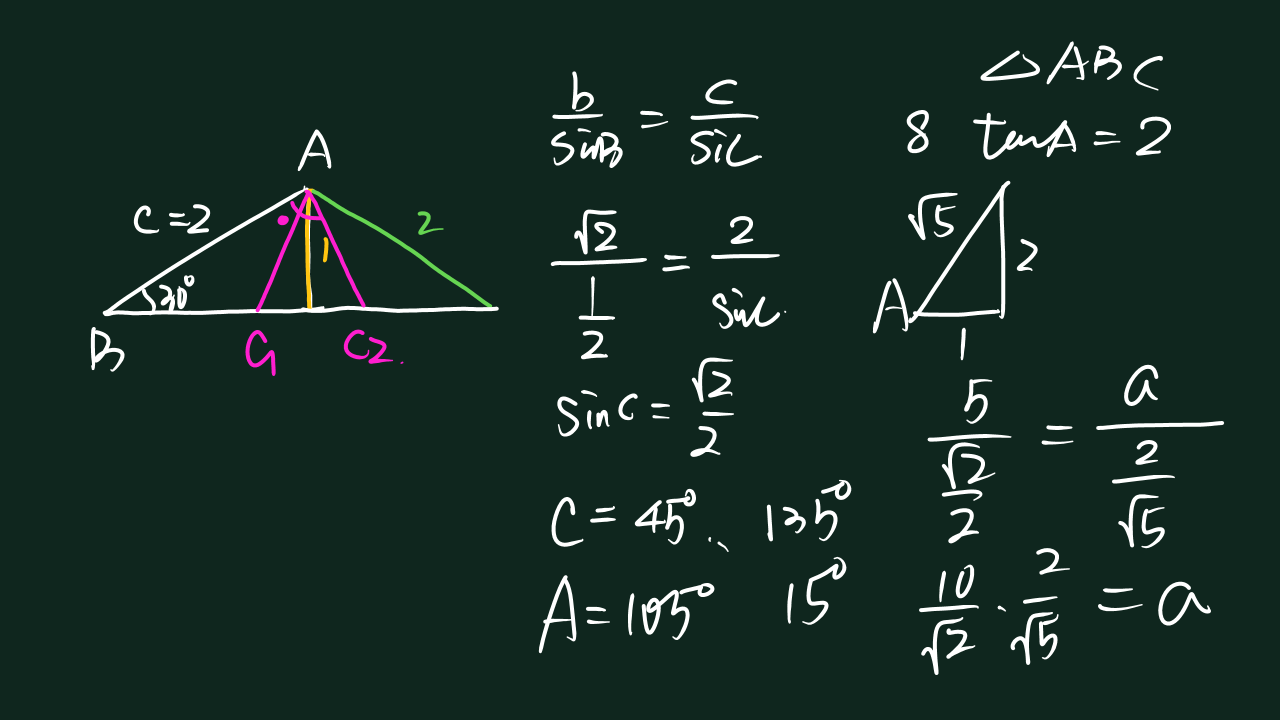 A
c=2
2
1
30°
B
C1
C2.
b/sinB = c/sinC
√2/(1/2) = 2/sinC.
sinC = √2/2
C = 45°、135°
A = 105° 15°
△ABC
8 tanA = 2
√5
2
A
1
5/(√2/2) = a/(2/√5)
10/√2 · 2/√5 = a